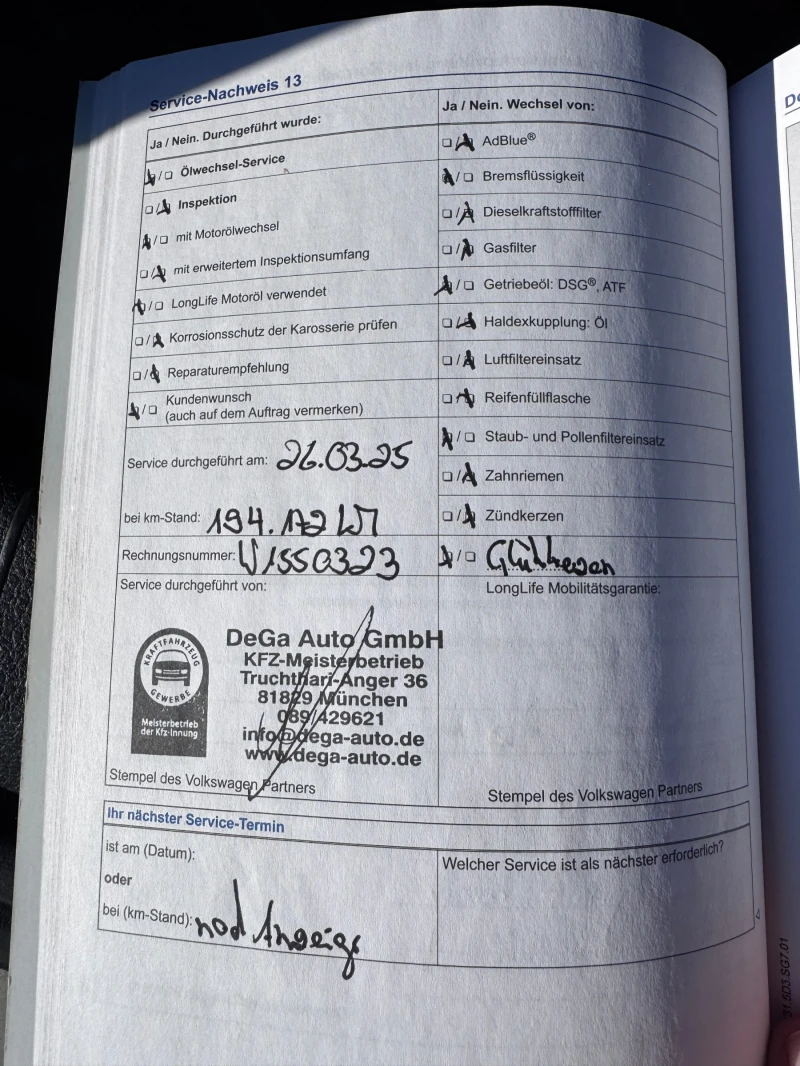 Service-Nachweis 13
Ja / Nein. Durchgeführt wurde:
Ölwechsel-Service
Inspektion
mit Motorölwechsel
mit erweitertem Inspektionsumfang
LongLife Motoröl verwendet
Korrosionsschutz der Karosserie prüfen
Reparaturempfehlung
Kundenwunsch
(auch auf dem Auftrag vermerken)
Service durchgeführt am: 26.03.25
bei km-Stand: 194.172 KM
Rechnungsnummer: W1550323
Service durchgeführt von:
KRAFTFAHRZEUG
GEWERBE
Meisterbetrieb
der Kfz-Innung
DeGa Auto GmbH
KFZ-Meisterbetrieb
Truchthari-Anger 36
81829 München
089/429621
info@dega-auto.de
www.dega-auto.de
Stempel des Volkswagen Partners
Ja / Nein. Wechsel von:
AdBlue®
Bremsflüssigkeit
Dieselkraftstofffilter
Gasfilter
Getriebeöl: DSG®, ATF
Haldexkupplung: Öl
Luftfiltereinsatz
Reifenfüllflasche
Staub- und Pollenfiltereinsatz
Zahnriemen
Zündkerzen
Glühkerzen
LongLife Mobilitätsgarantie:
Stempel des Volkswagen Partners
Ihr nächster Service-Termin
ist am (Datum):
oder
bei (km-Stand): nach Anzeige
Welcher Service ist als nächster erforderlich?
31.5D3.SG7.01